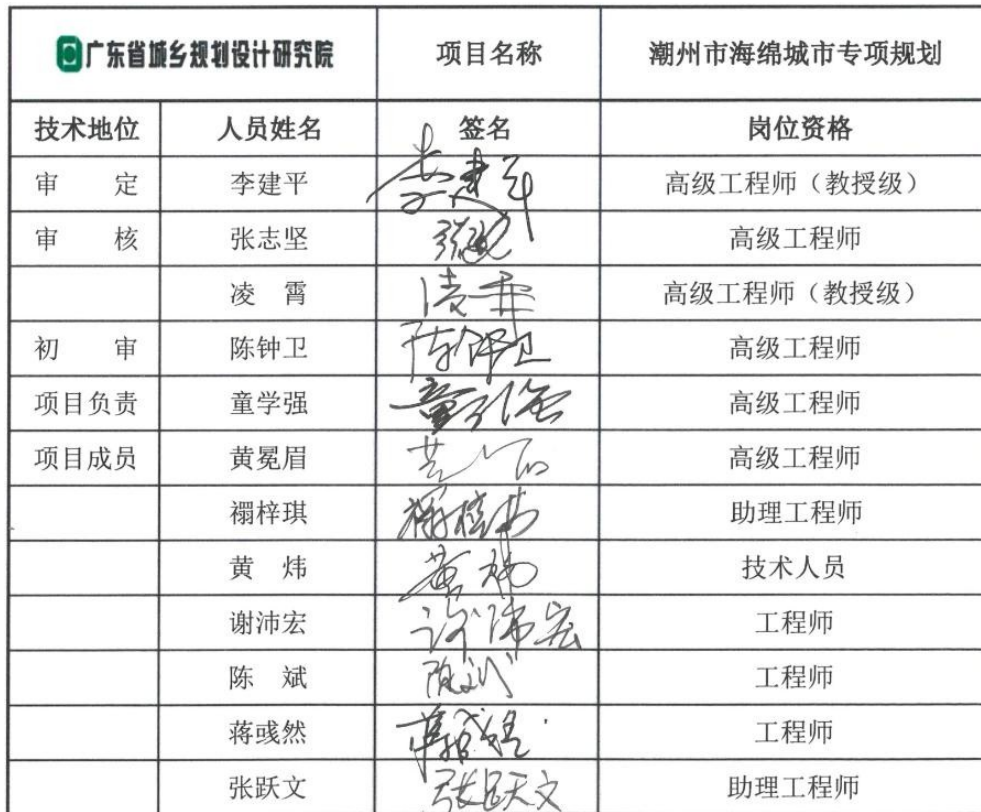 广东省城乡规划设计研究院 项目名称 潮州市海绵城市专项规划
技术地位 人员姓名 签名 岗位资格
审 定 李建平 李建平 高级工程师（教授级）
审 核 张志坚 高级工程师
凌 霄 凌霄 高级工程师（教授级）
初 审 陈钟卫 陈钟卫 高级工程师
项目负责 童学强 童学强 高级工程师
项目成员 黄冕眉 高级工程师
禤梓琪 助理工程师
黄 炜 黄炜 技术人员
谢沛宏 谢沛宏 工程师
陈 斌 陈斌 工程师
蒋彧然 工程师
张跃文 张跃文 助理工程师